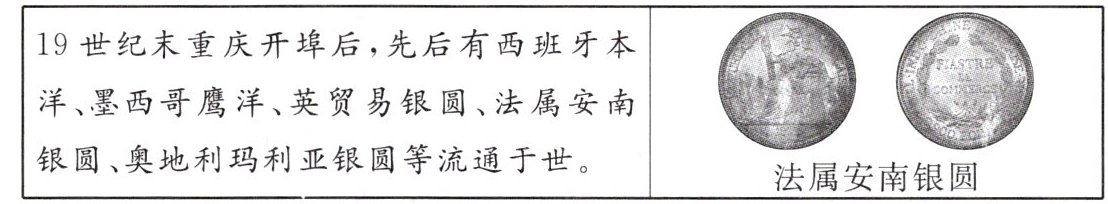 19世纪末重庆开埠后,先后有西班牙本
洋、墨西哥鹰洋、英贸易银圆、法属安南
银圆、奥地利玛利亚银圆等流通于世。
PIASTRE
DE
COMMERCE
法属安南银圆